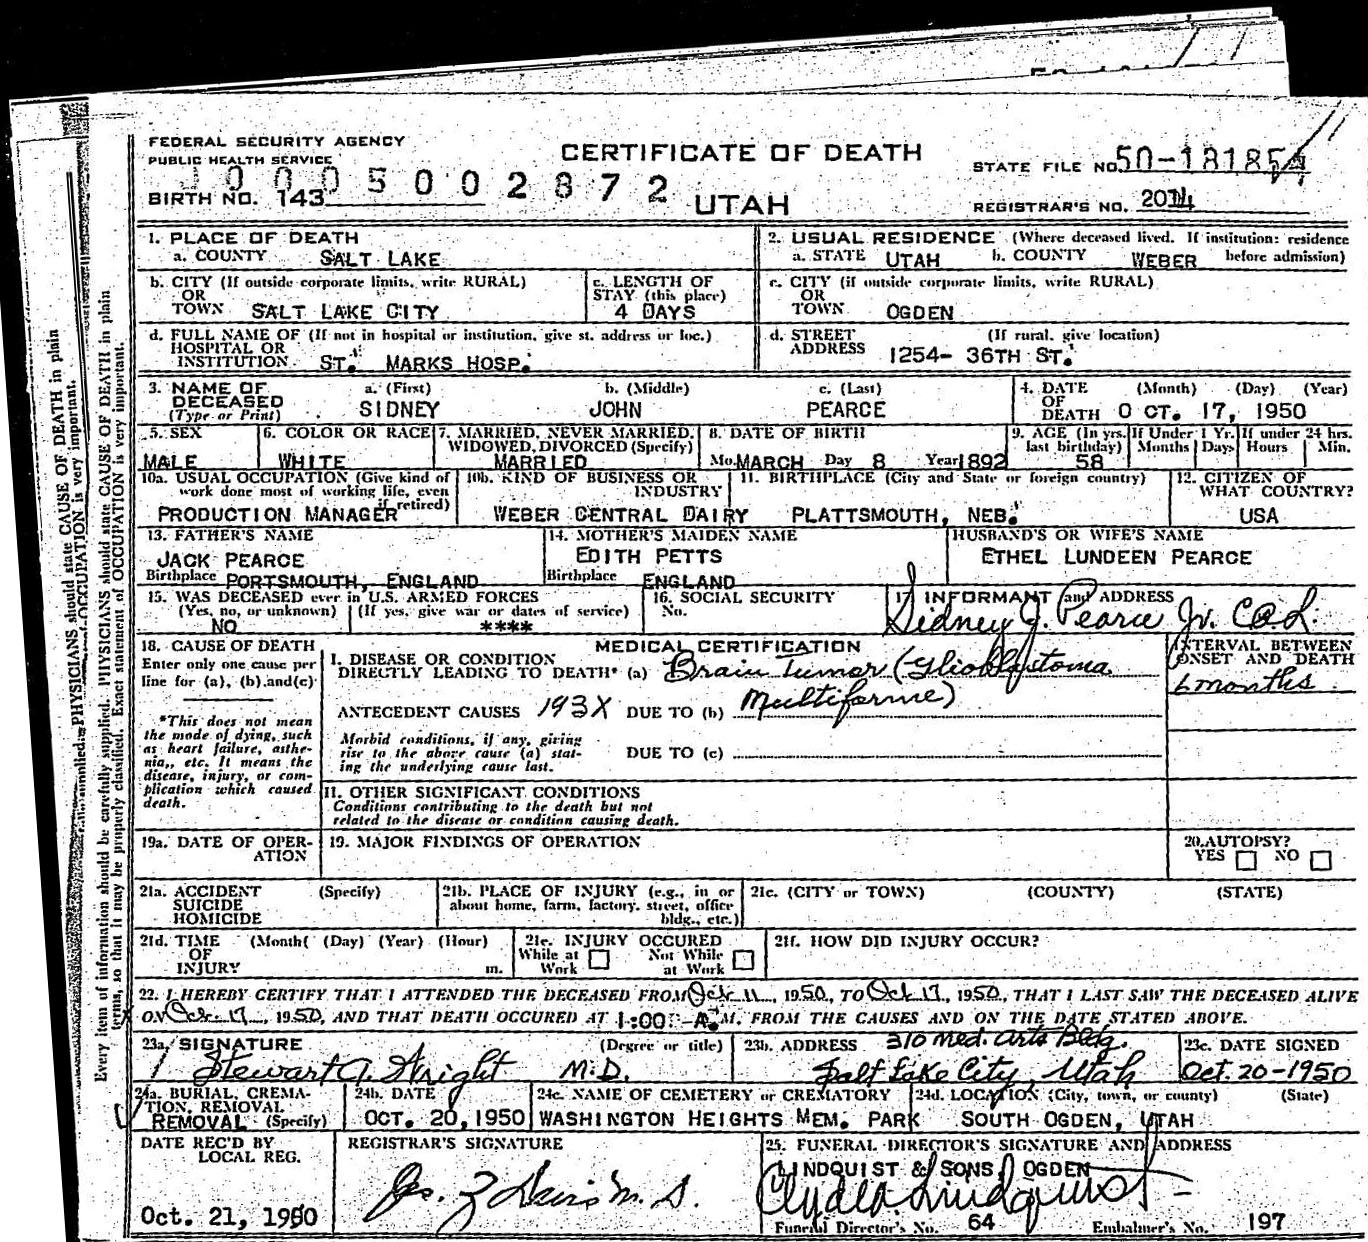 FEDERAL SECURITY AGENCY
PUBLIC HEALTH SERVICE
CERTIFICATE OF DEATH
STATE FILE NO. 50-181854
1 0 0 0 5 0 0 2 8 7 2
BIRTH NO. 143
UTAH
REGISTRAR'S NO. 2014
1. PLACE OF DEATH
a. COUNTY SALT LAKE
2. USUAL RESIDENCE (Where deceased lived. If institution: residence before admission)
a. STATE UTAH b. COUNTY WEBER
b. CITY (If outside corporate limits, write RURAL)
OR
TOWN SALT LAKE CITY
c. LENGTH OF
STAY (this place)
4 DAYS
c. CITY (if outside corporate limits, write RURAL)
OR
TOWN OGDEN
d. FULL NAME OF (If not in hospital or institution, give st. address or loc.)
HOSPITAL OR
INSTITUTION ST. MARKS HOSP.
d. STREET (If rural, give location)
ADDRESS 1254- 36TH ST.
3. NAME OF
DECEASED
(Type or Print)
a. (First) b. (Middle) c. (Last)
SIDNEY JOHN PEARCE
4. DATE (Month) (Day) (Year)
OF
DEATH OCT. 17, 1950
5. SEX
MALE
6. COLOR OR RACE
WHITE
7. MARRIED, NEVER MARRIED,
WIDOWED, DIVORCED (Specify)
MARRIED
8. DATE OF BIRTH
Mo. MARCH Day 8 Year 1892
9. AGE (In yrs.
last birthday)
58
If Under 1 Yr.
Months Days
If under 24 hrs.
Hours Min.
10a. USUAL OCCUPATION (Give kind of
work done most of working life, even
if retired)
PRODUCTION MANAGER
10b. KIND OF BUSINESS OR
INDUSTRY
WEBER CENTRAL DAIRY
11. BIRTHPLACE (City and State or foreign country)
PLATTSMOUTH, NEB.
12. CITIZEN OF
WHAT COUNTRY?
USA
13. FATHER'S NAME
JACK PEARCE
Birthplace PORTSMOUTH, ENGLAND
14. MOTHER'S MAIDEN NAME
EDITH PETTS
Birthplace ENGLAND
HUSBAND'S OR WIFE'S NAME
ETHEL LUNDEEN PEARCE
15. WAS DECEASED ever in U.S. ARMED FORCES
(Yes, no, or unknown) (If yes, give war or dates of service)
NO ****
16. SOCIAL SECURITY
No.
17. INFORMANT and ADDRESS
Sidney J. Pearce Jr.
18. CAUSE OF DEATH
Enter only one cause per
line for (a), (b) and (c)
*This does not mean
the mode of dying, such
as heart failure, asthe-
nia,, etc. It means the
disease, injury, or com-
plication which caused
death.
MEDICAL CERTIFICATION
I. DISEASE OR CONDITION
DIRECTLY LEADING TO DEATH* (a) Brain Tumor (Glioblastoma
Multiforme)
ANTECEDENT CAUSES 193X DUE TO (b)
Morbid conditions, if any, giving
rise to the above cause (a) stat-
ing the underlying cause last.
DUE TO (c)
INTERVAL BETWEEN
ONSET AND DEATH
6 months
II. OTHER SIGNIFICANT CONDITIONS
Conditions contributing to the death but not
related to the disease or condition causing death.
19a. DATE OF OPER-
ATION
19. MAJOR FINDINGS OF OPERATION
20. AUTOPSY?
YES NO
21a. ACCIDENT (Specify)
SUICIDE
HOMICIDE
21b. PLACE OF INJURY (e.g., in or
about home, farm, factory, street, office
bldg., etc.)
21c. (CITY or TOWN) (COUNTY) (STATE)
21d. TIME (Month( (Day) (Year) (Hour)
OF
INJURY m.
21e. INJURY OCCURED
While at Work
Not While at Work
21f. HOW DID INJURY OCCUR?
22. I HEREBY CERTIFY THAT I ATTENDED THE DECEASED FROM Oct. 11, 1950, TO Oct 17, 1950, THAT I LAST SAW THE DECEASED ALIVE
ON Oct. 17, 1950, AND THAT DEATH OCCURED AT 1:00 A.M. FROM THE CAUSES AND ON THE DATE STATED ABOVE.
23a. SIGNATURE (Degree or title)
Stewart A. Wright M.D.
23b. ADDRESS 310 Med. Arts Bldg.
Salt Lake City, Utah
23c. DATE SIGNED
Oct. 20-1950
24a. BURIAL, CREMA-
TION, REMOVAL
REMOVAL (Specify)
24b. DATE
OCT. 20, 1950
24c. NAME OF CEMETERY or CREMATORY
WASHINGTON HEIGHTS MEM. PARK
24d. LOCATION (City, town, or county) (State)
SOUTH OGDEN, UTAH
DATE REC'D BY
LOCAL REG.
Oct. 21, 1950
REGISTRAR'S SIGNATURE
25. FUNERAL DIRECTOR'S SIGNATURE AND ADDRESS
LINDQUIST & SONS OGDEN
Clyde A. Lindquist
Funeral Director's No. 64 Embalmer's No. 197
Every item of information should be carefully supplied. PHYSICIANS should state CAUSE OF DEATH in plain
terms, so that it may be properly classified. Exact statement of OCCUPATION is very important.
PHYSICIANS should state CAUSE OF DEATH in plain
OCCUPATION is very important.